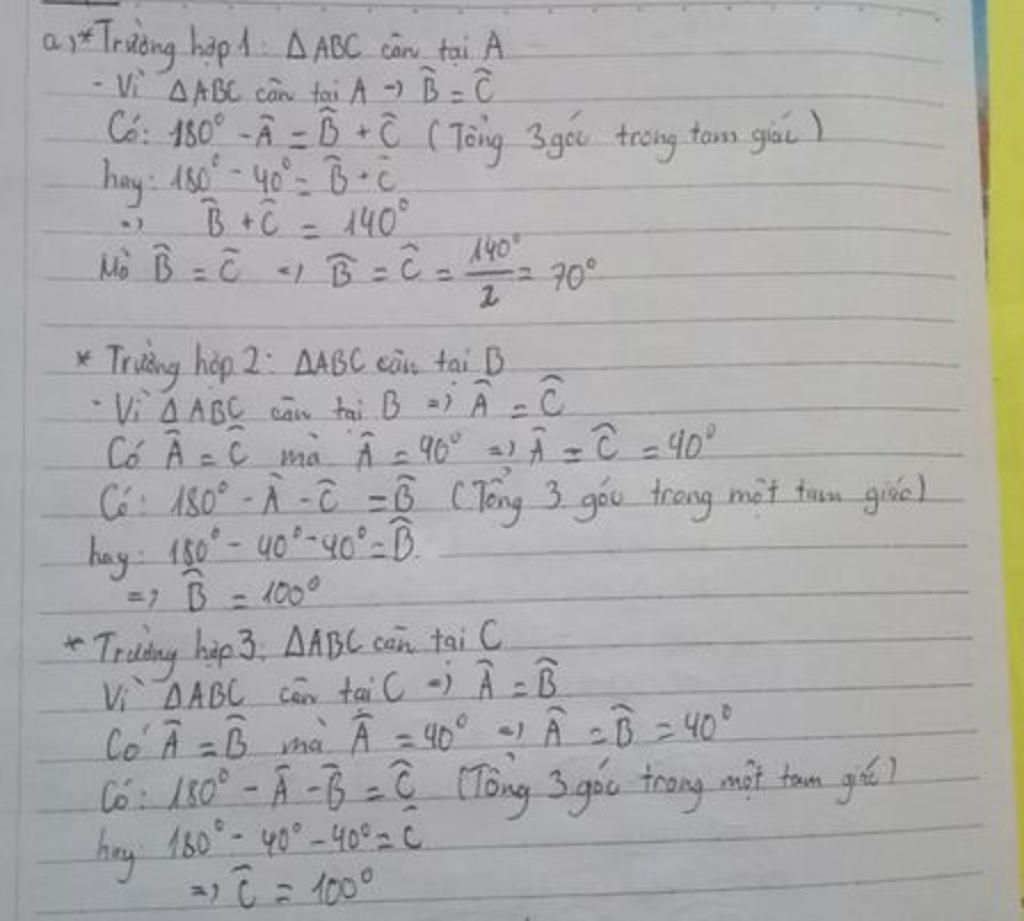 a,* Trường hợp 1: ΔABC cân tại A
- Vì ΔABC cân tại A → B̂ = Ĉ
Có: 180° - Â = B̂ + Ĉ (Tổng 3 góc trong tam giác)
hay: 180° - 40° = B̂ + Ĉ
=> B̂ + Ĉ = 140°
Mà B̂ = Ĉ => B̂ = Ĉ = 140°/2 = 70°
* Trường hợp 2: ΔABC cân tại B
- Vì ΔABC cân tại B => Â = Ĉ
Có Â = Ĉ mà Â = 40° => Â = Ĉ = 40°
Có: 180° - Â - Ĉ = B̂ (Tổng 3 góc trong một tam giác)
hay: 180° - 40° - 40° = B̂
=> B̂ = 100°
* Trường hợp 3: ΔABC cân tại C
Vì ΔABC cân tại C => Â = B̂
Có Â = B̂ mà Â = 40° => Â = B̂ = 40°
Có: 180° - Â - B̂ = Ĉ (Tổng 3 góc trong một tam giác)
hay: 180° - 40° - 40° = Ĉ
=> Ĉ = 100°